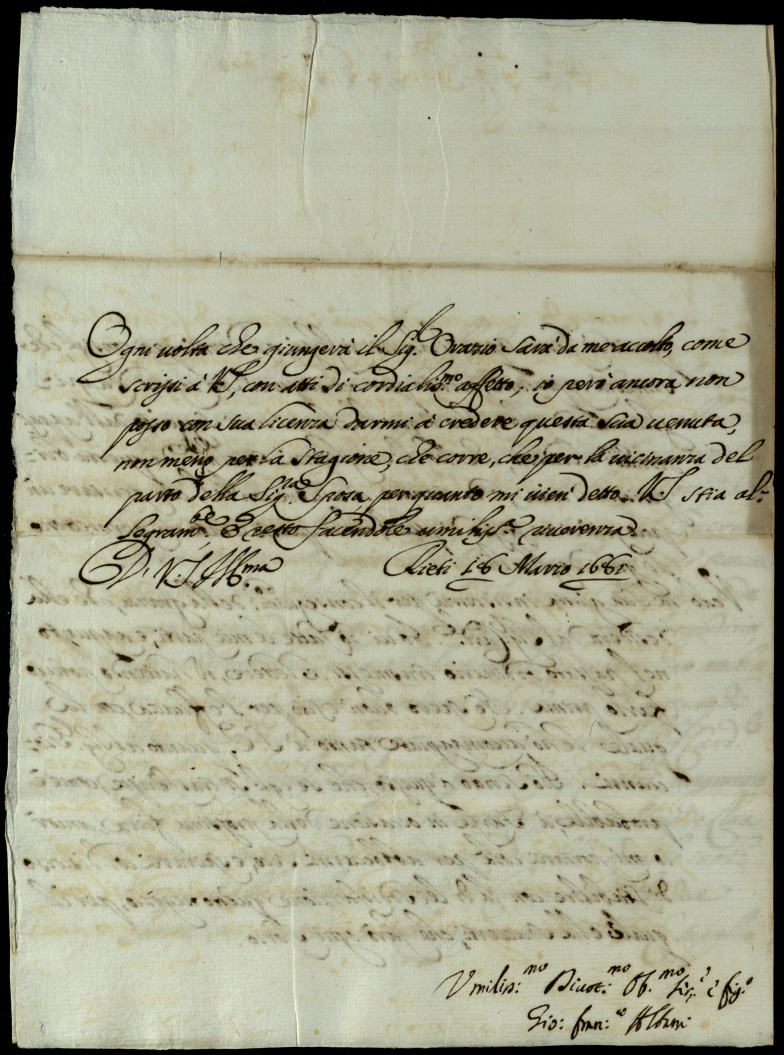 Ogni uolta che giungerà il Sig.r Orazio sarà da me accolto, come
scrissi à V.S., con atti di cordialiss.mo affetto, io però ancora non
posso con sua licenza darmi à credere questa sua uenuta,
non meno per la stagione, che corre, che per la uicinanza del
parto della Sig.ra Sposa per quanto mi uien detto. V.S. stia al-
legram.te e resto facendole umiliss.a riuerenza.
Di V.S. Ill.ma Rieti 16 Marzo 1681
Vmiliss:mo Diuot:mo Ob.mo Ser.e e fig.o
Gio: Fran:co Albani